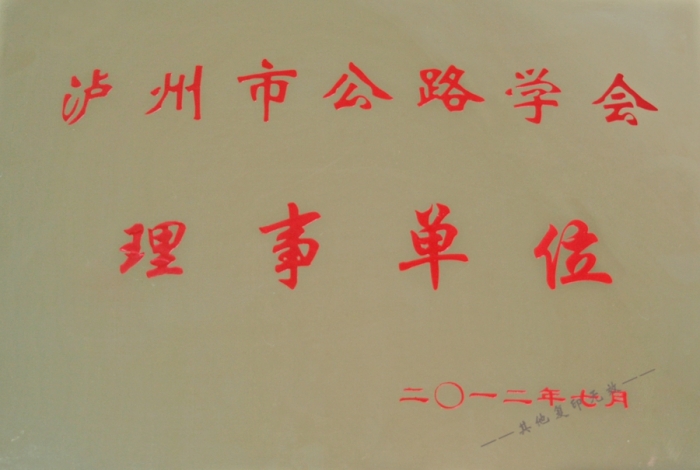 泸州市公路学会
理事单位
二〇一二年七月
——其他复印无效——